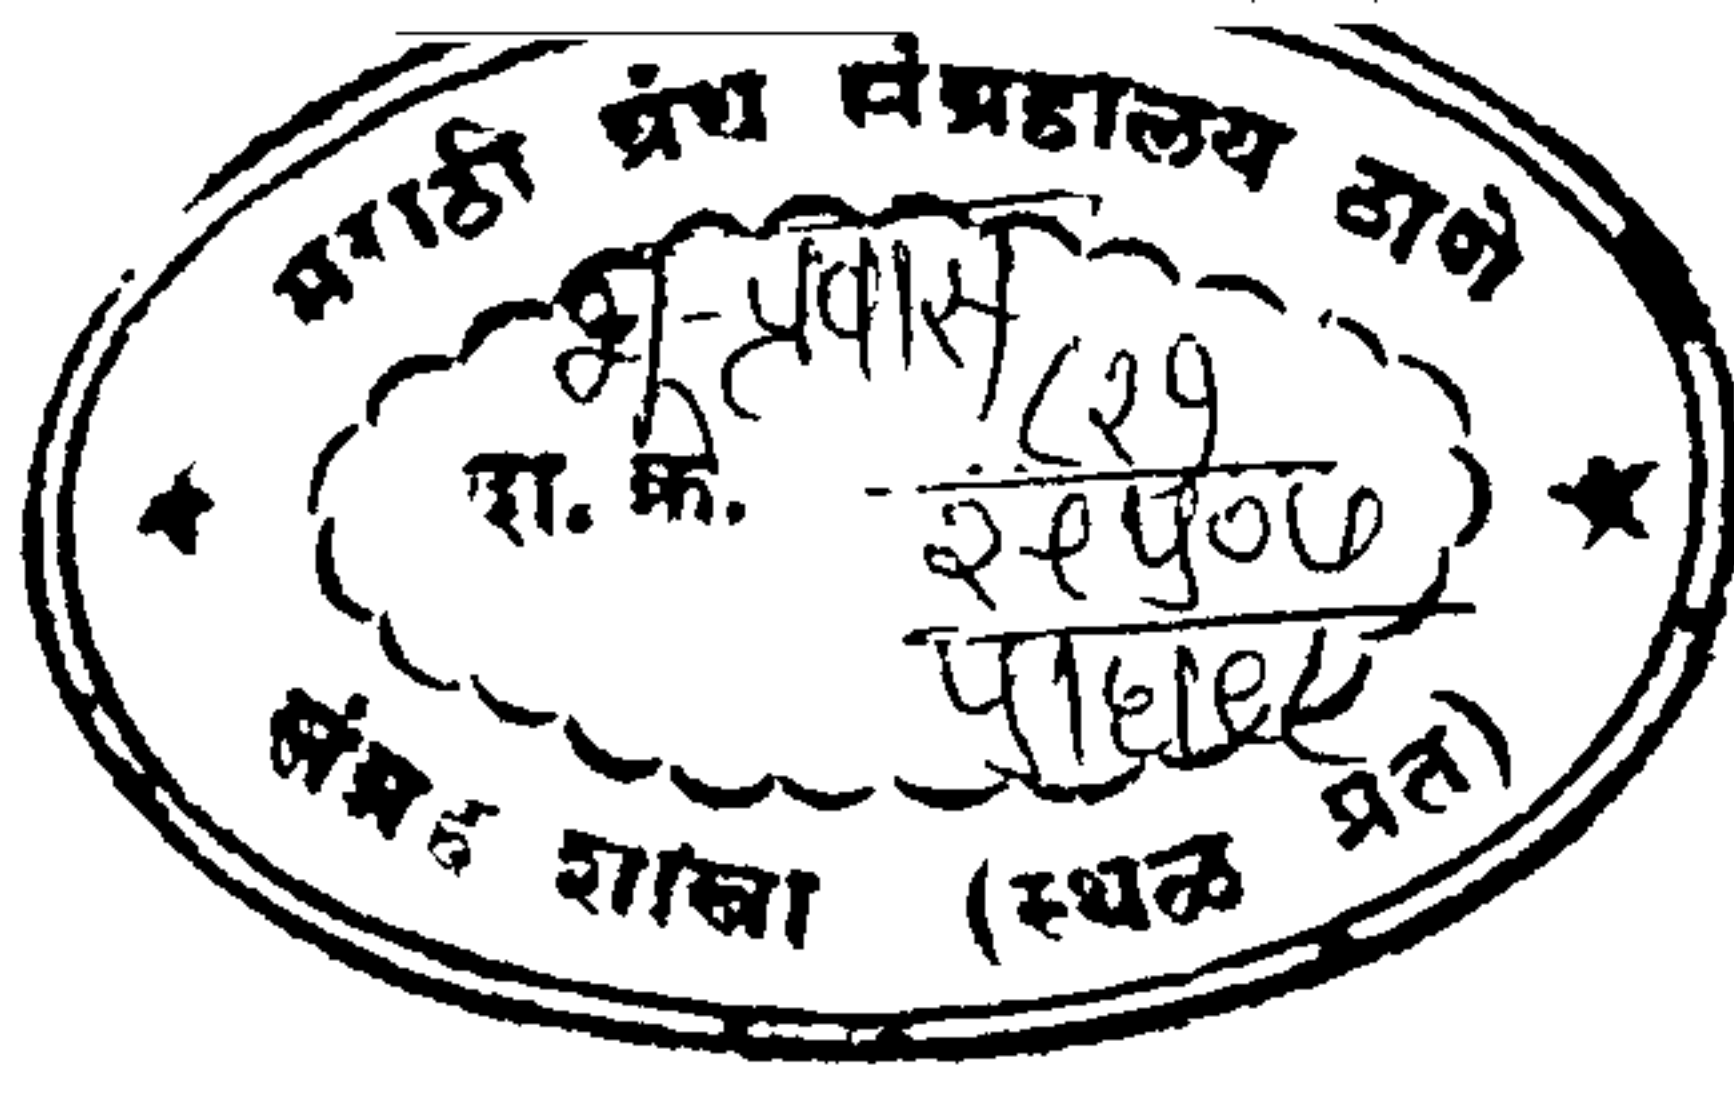 मराठी ग्रंथ संग्रहालय ठाणे
भू-प्रवास
८२१
दा. क्र. -
२९५०७
५।६।९८
संग्रह शाखा (स्थळ प्रत)